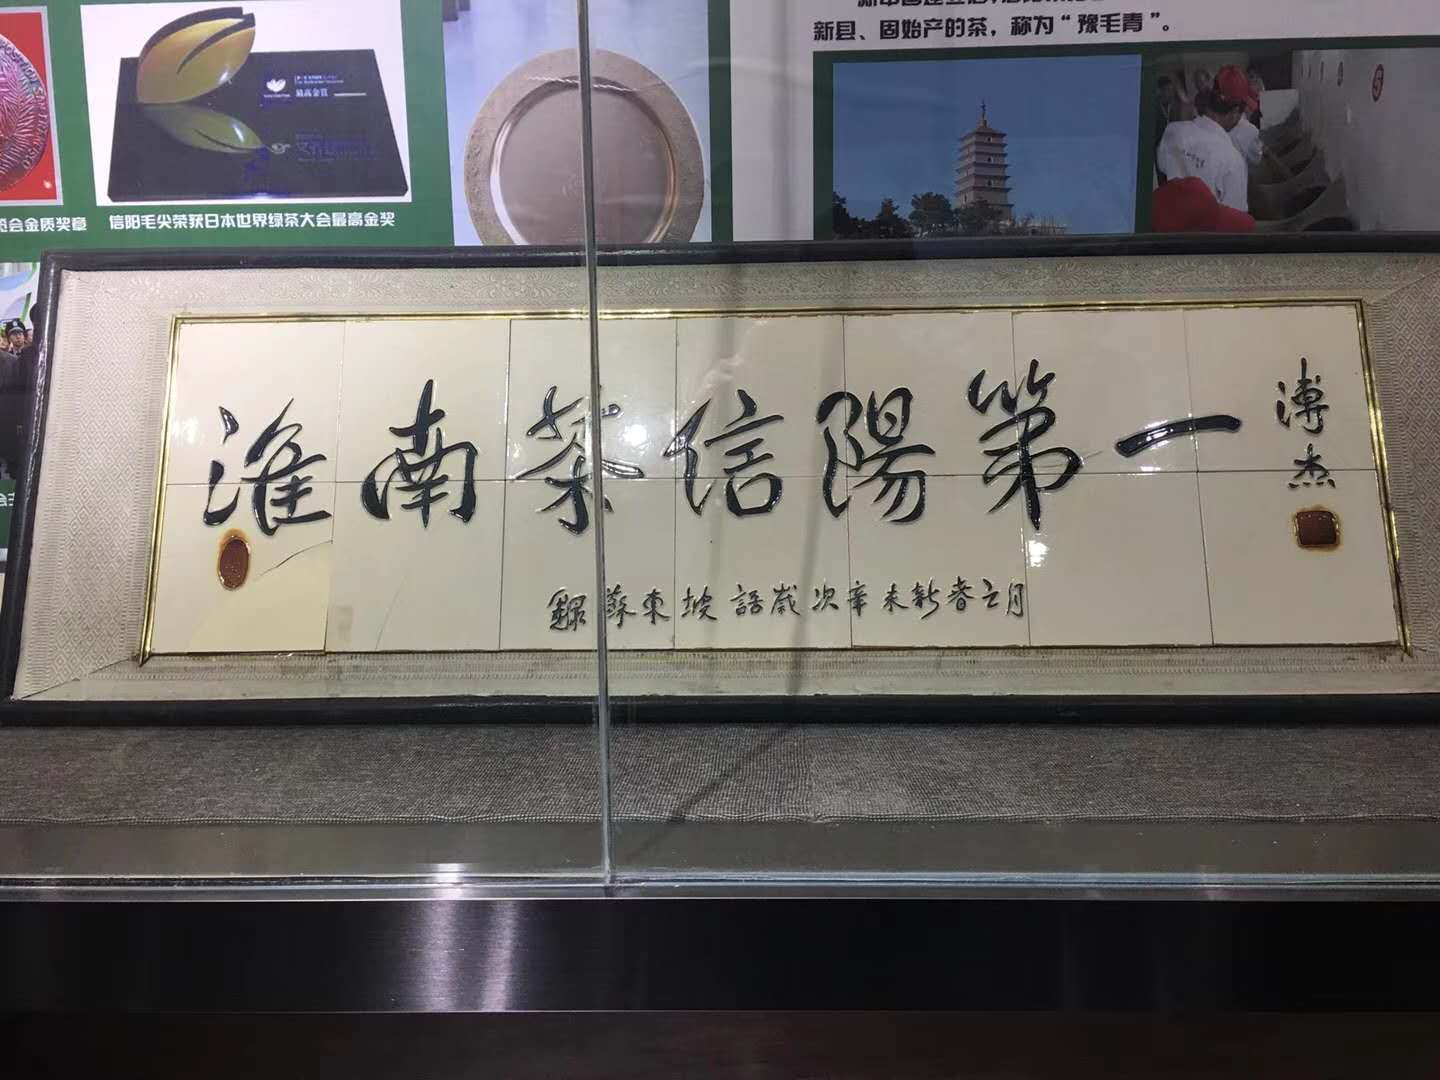 新县、固始产的茶，称为“豫毛青”。
最高金賞
览会金质奖章
信阳毛尖荣获日本世界绿茶大会最高金奖
5
淮南茶信陽第一
溥杰
錄蘇東坡語歲次辛未新春正月